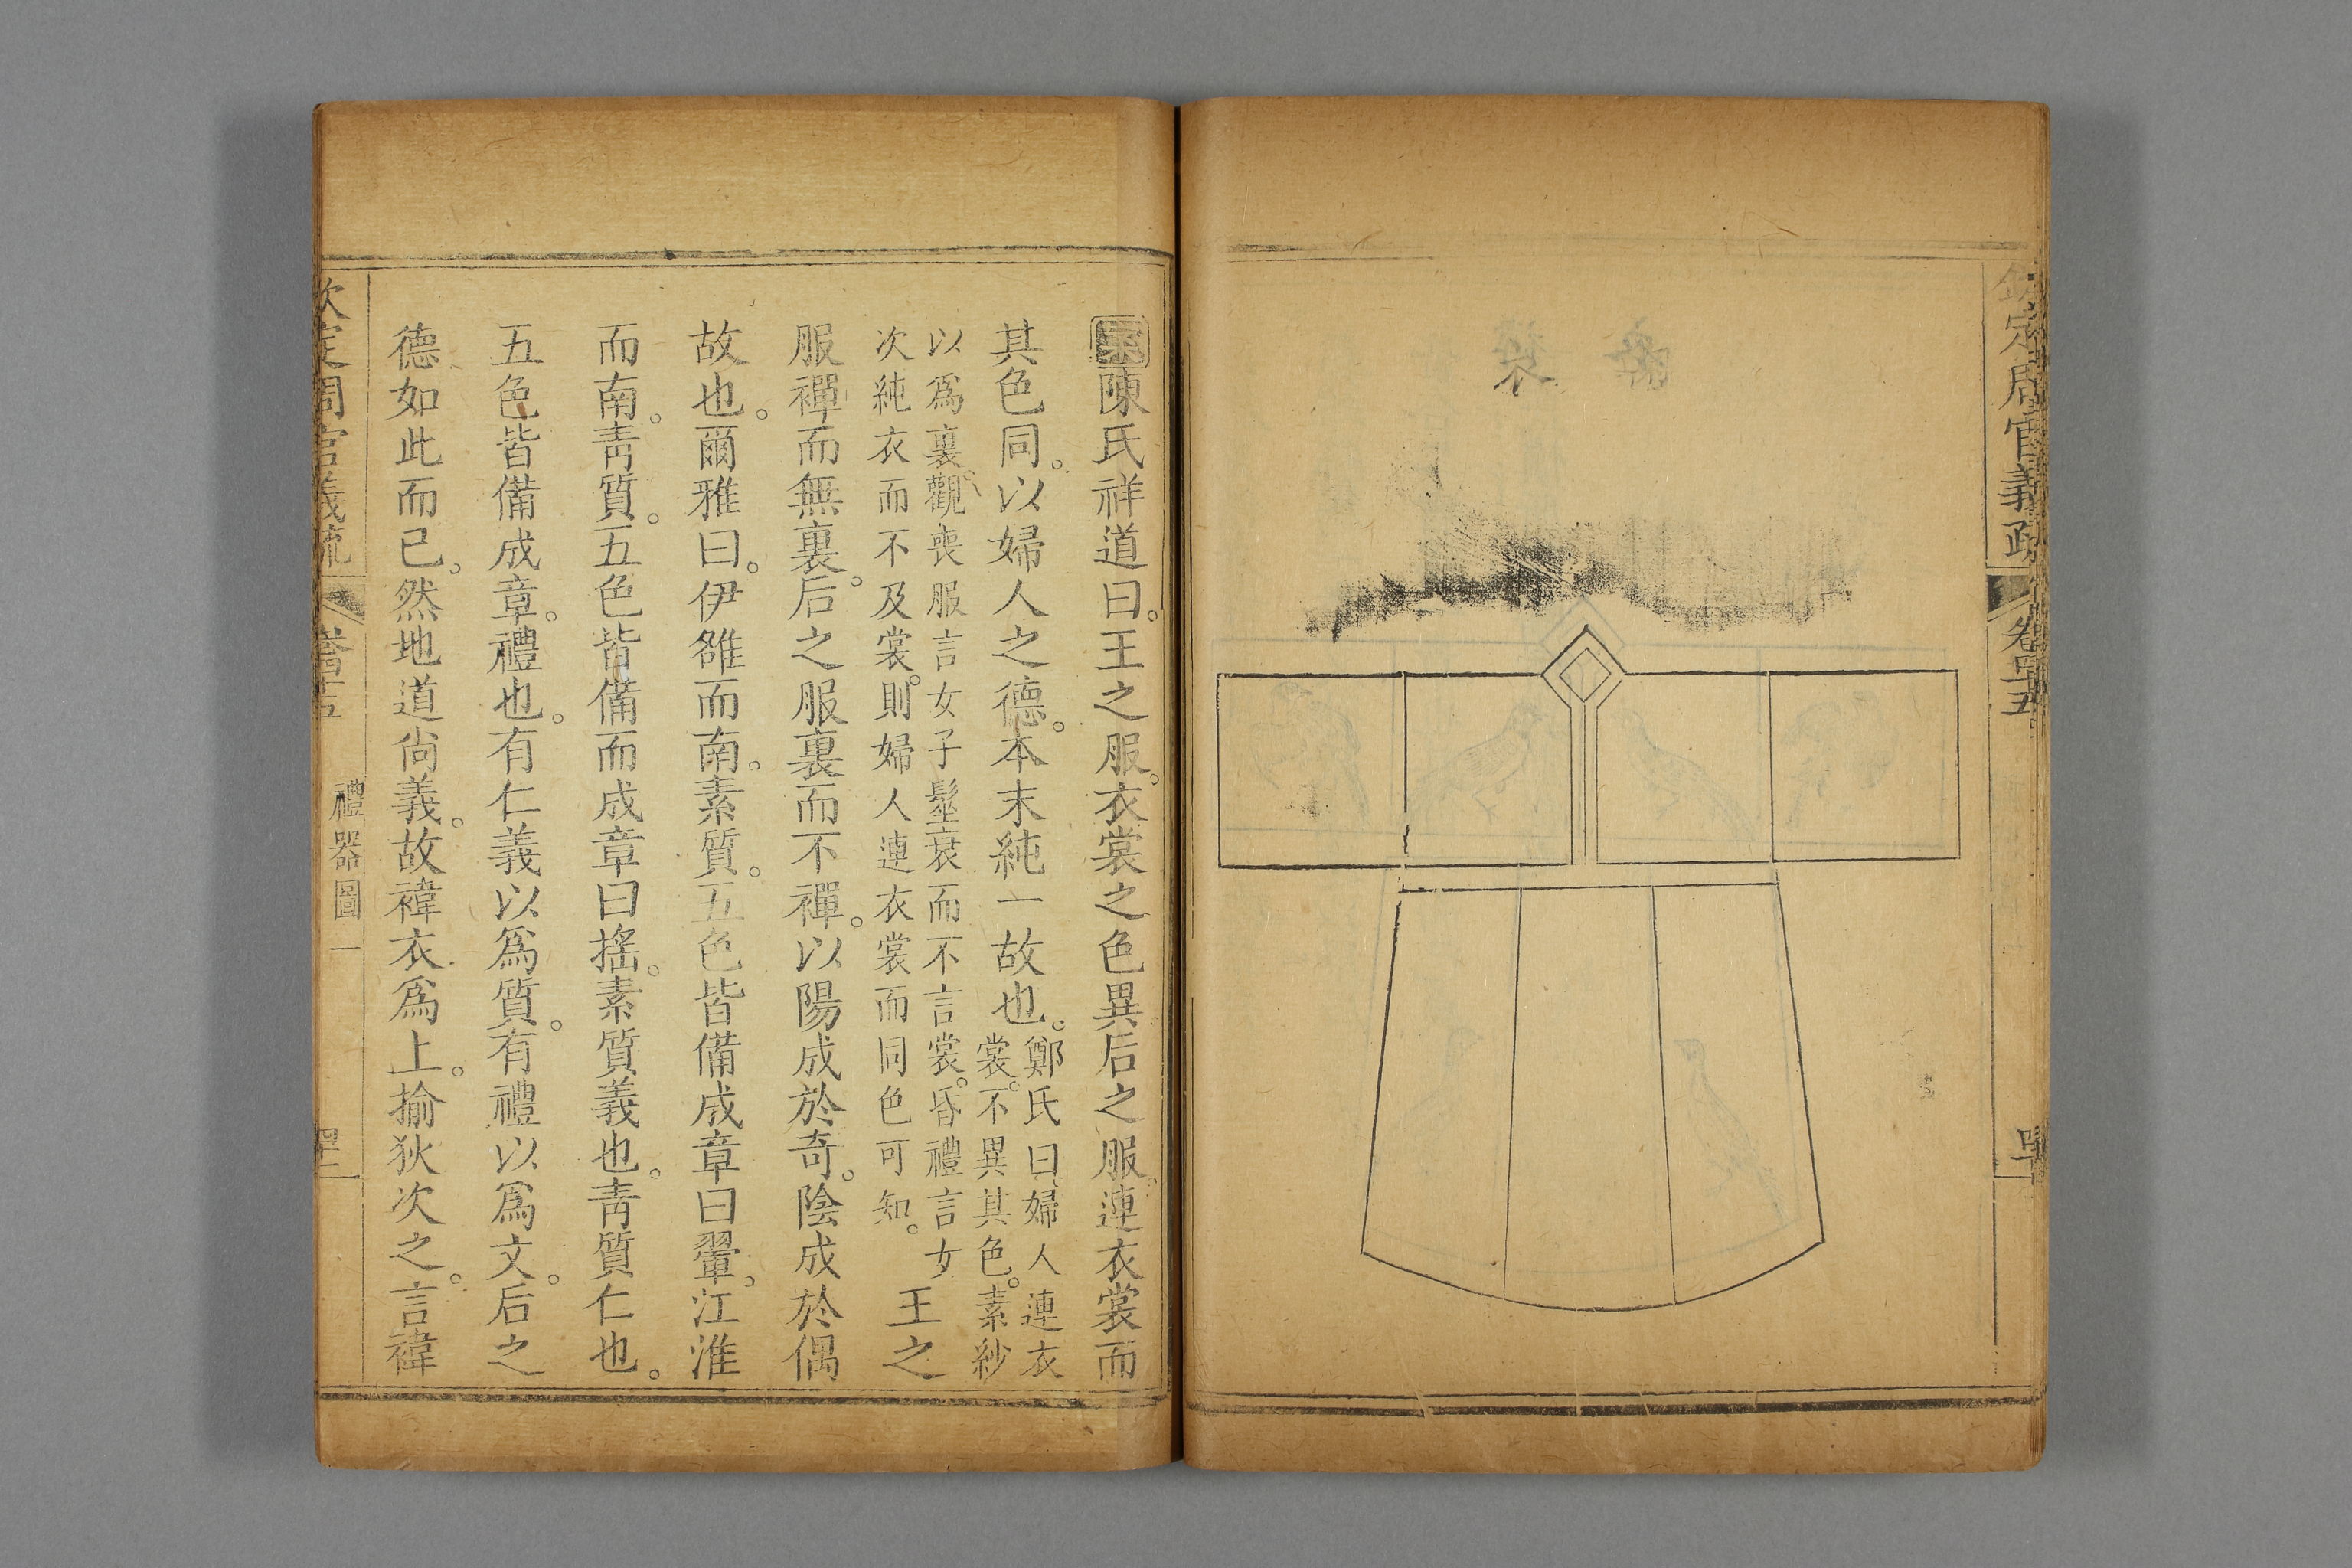 欽定周官義疏
卷四十五
案陳氏祥道曰。王之服。衣裳之色異后之服。連衣裳而
其色同。以婦人之德。本末純一故也。
鄭氏曰婦人連衣
裳。不異其色。素紗
以爲裏。觀喪服言女子髽衰而不言裳。昏禮言女
次純衣而不及裳。則婦人連衣裳而同色可知。
王之
服禪而無裏。后之服裏而不禪。以陽成於奇。陰成於偶
故也。爾雅曰。伊雒而南。素質。五色皆備成章曰翬。江淮
而南。青質。五色皆備而成章曰搖。素質義也。青質仁也。
五色皆備成章。禮也。有仁義以爲質。有禮以爲文。后之
德如此而已。然地道尚義。故褘衣爲上。揄狄次之。言褘
欽定周官義疏
卷四十五
禮器圖一